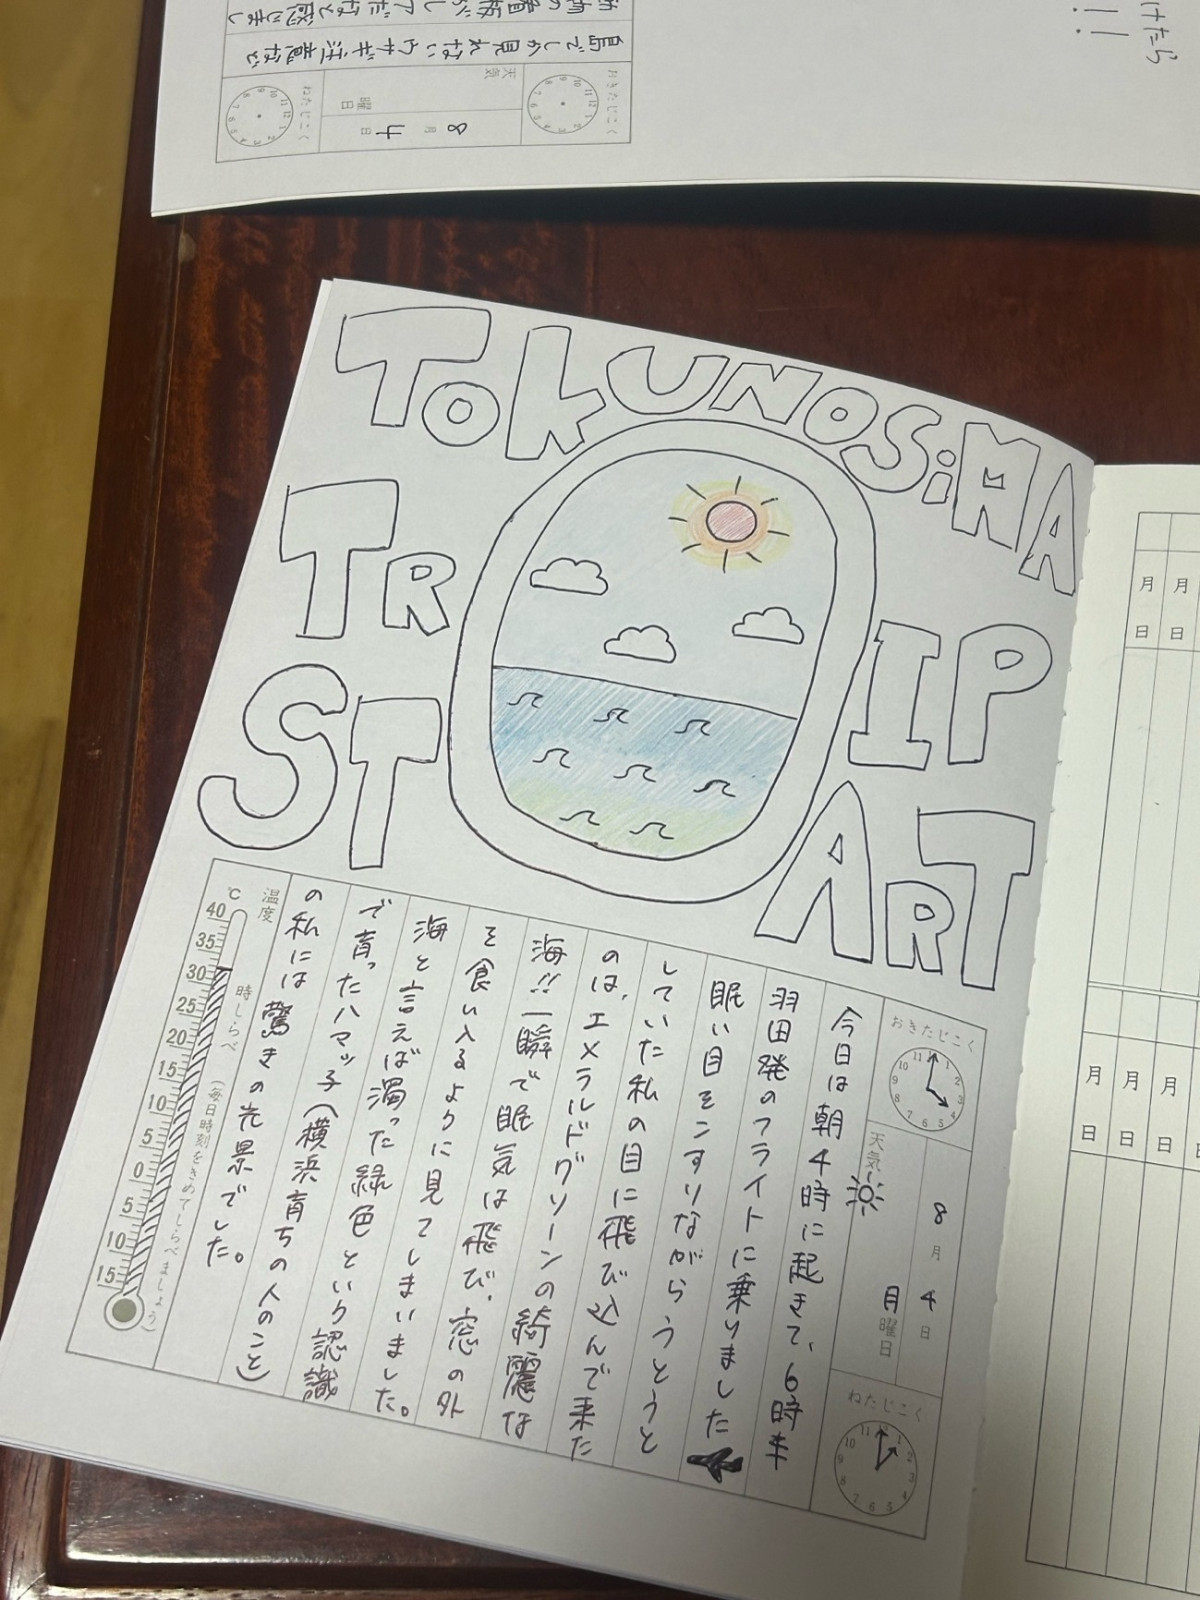 TOKUNOSiMA
TRIP
START
おきたじこく
8月4日
天気
月曜日
ねたじこく
今日は朝4時に起きて、6時半
羽田発のフライトに乗りました
眠い目をこすりながらうとうと
していた私の目に飛び込んで来た
のは、エメラルドグリーンの綺麗な
海!!一瞬で眠気は飛び、窓の外
を食い入るように見てしまいました。
海と言えば濁った緑色という認識
で育ったハマッ子(横浜育ちの人のこと)
の私には驚きの光景でした。
温度
時しらべ(毎日時刻をきめてしらべましょう)
℃
40
35
30
25
20
15
10
5
0
5
10
15
おきたじこく
8月4日
曜日
天気
ねたじこく
島でしか見れないウサギ注意など
けたら
!!
月 日
月 日
月 日
月 日
月 日